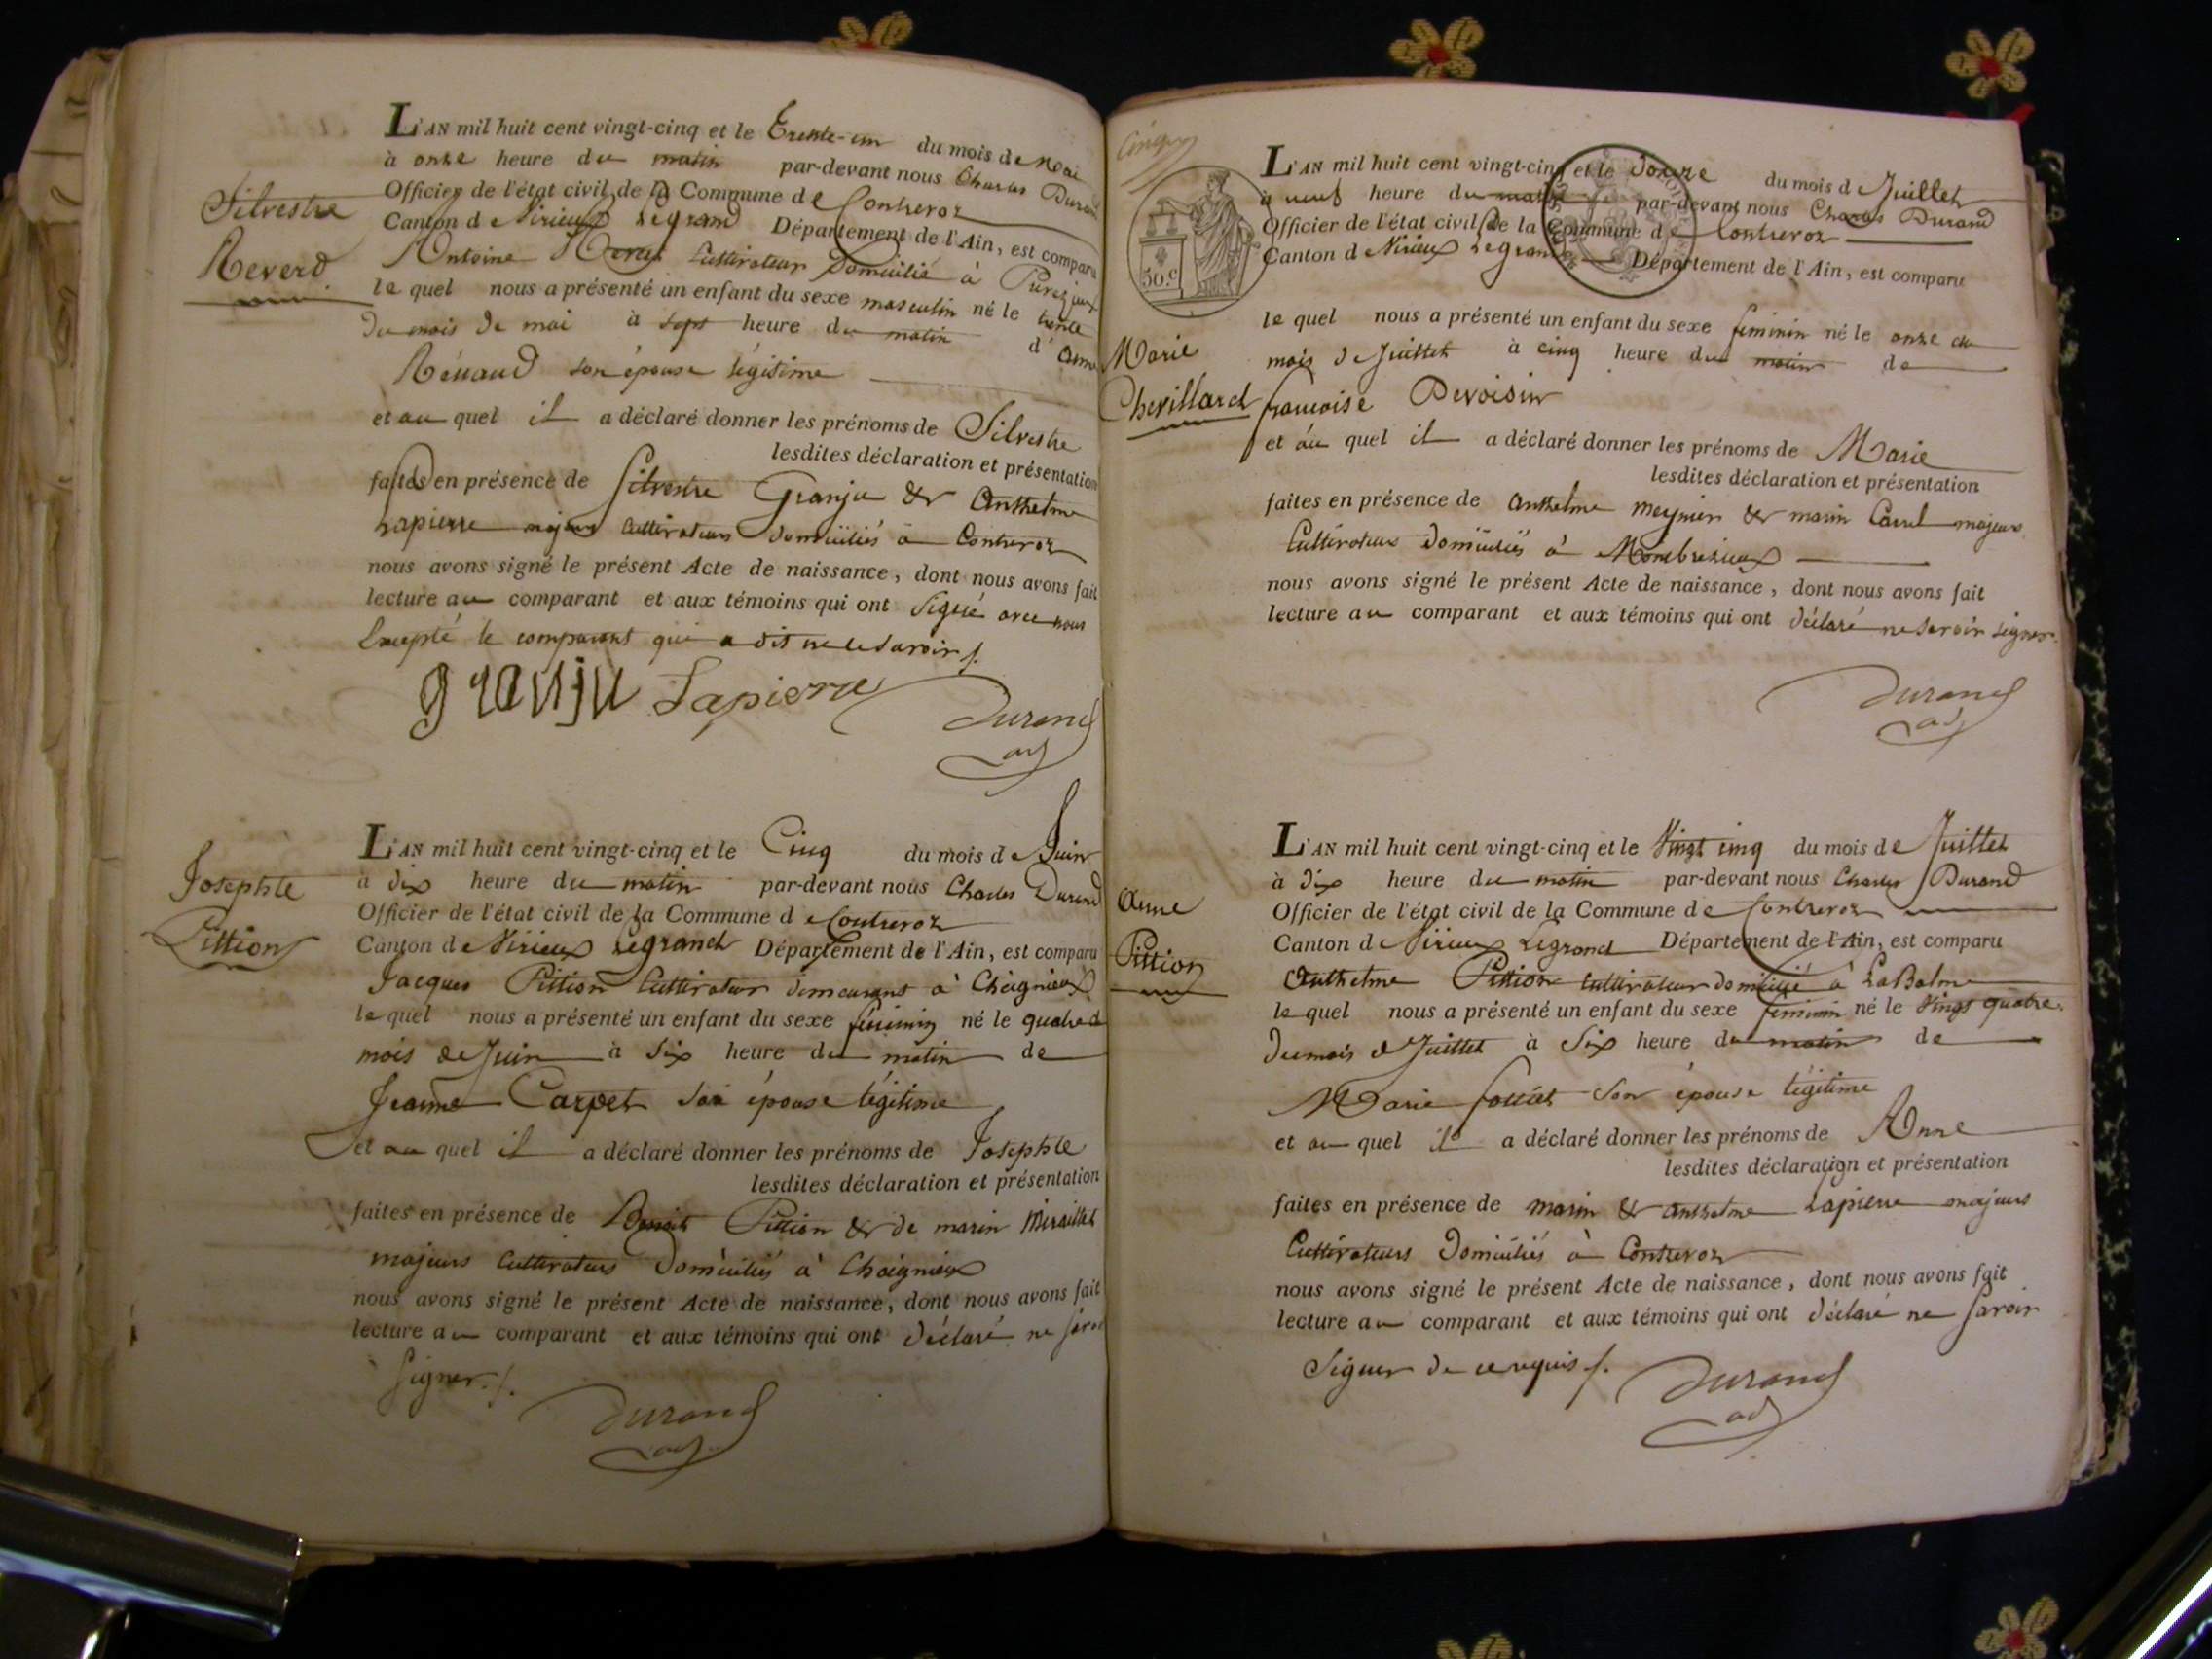 Silvestre
Reverd
L'AN mil huit cent vingt-cinq et le Trente-un du mois de Mai
à onze heure du matin par-devant nous Charles Durand
Officier de l'état civil de la Commune de Contrevoz
Canton de Virieux Legrand Département de l'Ain, est comparu
Antoine Cultivateur Domicilié à
le quel nous a présenté un enfant du sexe masculin né le trente
du mois de mai à sept heure du matin d'anne
Rénaud son épouse légitime
et au quel il a déclaré donner les prénoms de Silvestre
lesdites déclaration et présentation
faites en présence de Silvestre Granju & Anthelme
Lapierre majeurs Cultivateurs domiciliés à Contrevoz
nous avons signé le présent Acte de naissance, dont nous avons fait
lecture au comparant et aux témoins qui ont signé avec nous
Excepté le comparant qui a dit ne le savoir /.
granju Lapierre Durand
adj
Josephte
Pittion
L'AN mil huit cent vingt-cinq et le Cinq du mois de Juin
à dix heure du matin par-devant nous Charles Durand
Officier de l'état civil de la Commune de Contrevoz
Canton de Virieux Legrand Département de l'Ain, est comparu
Jacques Pittion Cultivateur demeurant à Cheignieux
le quel nous a présenté un enfant du sexe féminin né le quatre d
mois de Juin à six heure du matin de
Jeanne Carpet son épouse légitime
et au quel il a déclaré donner les prénoms de Josephte
lesdites déclaration et présentation
faites en présence de Benoit Pittion & de marin Miraillet
majeurs Cultivateurs Domiciliés à Cheignieux
nous avons signé le présent Acte de naissance, dont nous avons fait
lecture au comparant et aux témoins qui ont déclaré ne savoir
signer. /.
Durand
adj
50.c
Marie
Chevillard
L'AN mil huit cent vingt-cinq et le Douze du mois de Juillet
à neuf heure du matin par-devant nous Charles Durand
Officier de l'état civil de la Commune de Contrevoz
Canton de Virieux Legrand Département de l'Ain, est comparu
le quel nous a présenté un enfant du sexe feminin né le onze du
mois de Juillet à cinq heure du matin de
françoise Devoisin
et au quel il a déclaré donner les prénoms de Marie
lesdites déclaration et présentation
faites en présence de Anthelme Meynier & marin Carrel majeurs
Cultivateurs Domiciliés à Mombrezieux
nous avons signé le présent Acte de naissance, dont nous avons fait
lecture au comparant et aux témoins qui ont déclaré ne savoir signer.
Durand
adj
Anne
Pittion
L'AN mil huit cent vingt-cinq et le Vingt cinq du mois de Juillet
à dix heure du matin par-devant nous Charles Durand
Officier de l'état civil de la Commune de Contrevoz
Canton de Virieux Legrand Département de l'Ain, est comparu
Anthelme Pittion cultivateur domicilié à LaBalme
le quel nous a présenté un enfant du sexe feminin né le Vingt quatre
du mois de Juillet à Six heure du matin de
Marie son épouse légitime
et au quel il a déclaré donner les prénoms de Anne
lesdites déclaration et présentation
faites en présence de marin & anthelme Lapierre majeurs
Cultivateurs Domiciliés à Contrevoz
nous avons signé le présent Acte de naissance, dont nous avons fait
lecture au comparant et aux témoins qui ont déclaré ne savoir
Signer de ce requis /.
Durand
adj